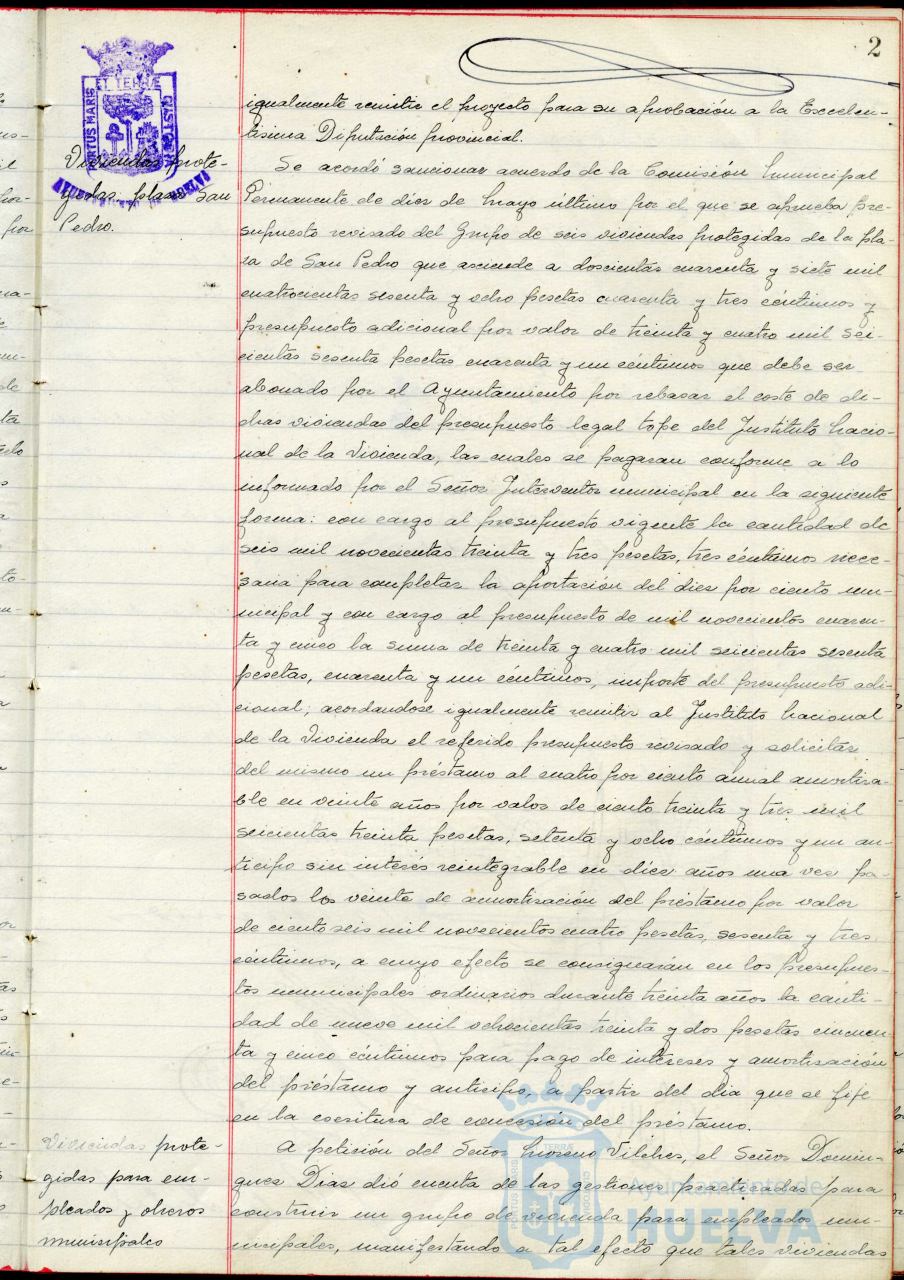 2
PORTUS MARIS ET TERRÆ CUSTODIA
igualmente remitir el proyecto para su aprobación a la Excelen-
tísima Diputación provincial.
Viviendas prote-
gidas plaza San
Pedro.
Se acordó sancionar acuerdo de la Comisión Municipal
Permanente de diez de Mayo último por el que se aprueba pre-
supuesto revisado del Grupo de seis viviendas protegidas de la pla-
za de San Pedro que asciende a doscientas cuarenta y siete mil
cuatrocientas sesenta y ocho pesetas cuarenta y tres céntimos y
presupuesto adicional por valor de treinta y cuatro mil sei-
cientas sesenta pesetas cuarenta y un céntimos que debe ser
abonado por el Ayuntamiento por rebasar el coste de di-
chas viviendas del presupuesto legal tope del Instituto Nacio-
nal de la Vivienda, las cuales se pagaran conforme a lo
informado por el Señor Interventor municipal en la siguiente
forma: con cargo al presupuesto vigente la cantidad de
seis mil novecientas treinta y tres pesetas, tres céntimos nece-
saria para completar la aportación del diez por ciento mu-
nicipal y con cargo al presupuesto de mil novecientos cuaren-
ta y cinco la suma de treinta y cuatro mil seicientas sesenta
pesetas, cuarenta y un céntimos, importe del presupuesto adi-
cional; acordandose igualmente remitir al Instituto Nacional
de la Vivienda el referido presupuesto revisado y solicitar
del mismo un préstamo al cuatro por ciento anual amortiza-
ble en veinte años por valor de ciento treinta y tres mil
seicientas treinta pesetas, setenta y ocho céntimos y un an-
ticipo sin interés reintegrable en diez años una vez pa-
sados los veinte de amortización del préstamo por valor
de ciento seis mil novecientos cuatro pesetas, sesenta y tres
céntimos, a cuyo efecto se consignarán en los presupues-
tos municipales ordinarios durante treinta años la canti-
dad de nueve mil ochocientas treinta y dos pesetas cincuen-
ta y cinco céntimos para pago de intereses y amortización
del préstamo y anticipo, a partir del dia que se fije
en la escritura de concesión del préstamo.
Viviendas prote-
gidas para em-
pleados y obreros
municipales
A petición del Señor Moreno Vilches, el Señor Domin-
guez Diaz dió cuenta de las gestiones practicadas para
construir un grupo de vivienda para empleados mu-
nicipales, manifestando a tal efecto que tales viviendas
Ayuntamiento de
HUELVA